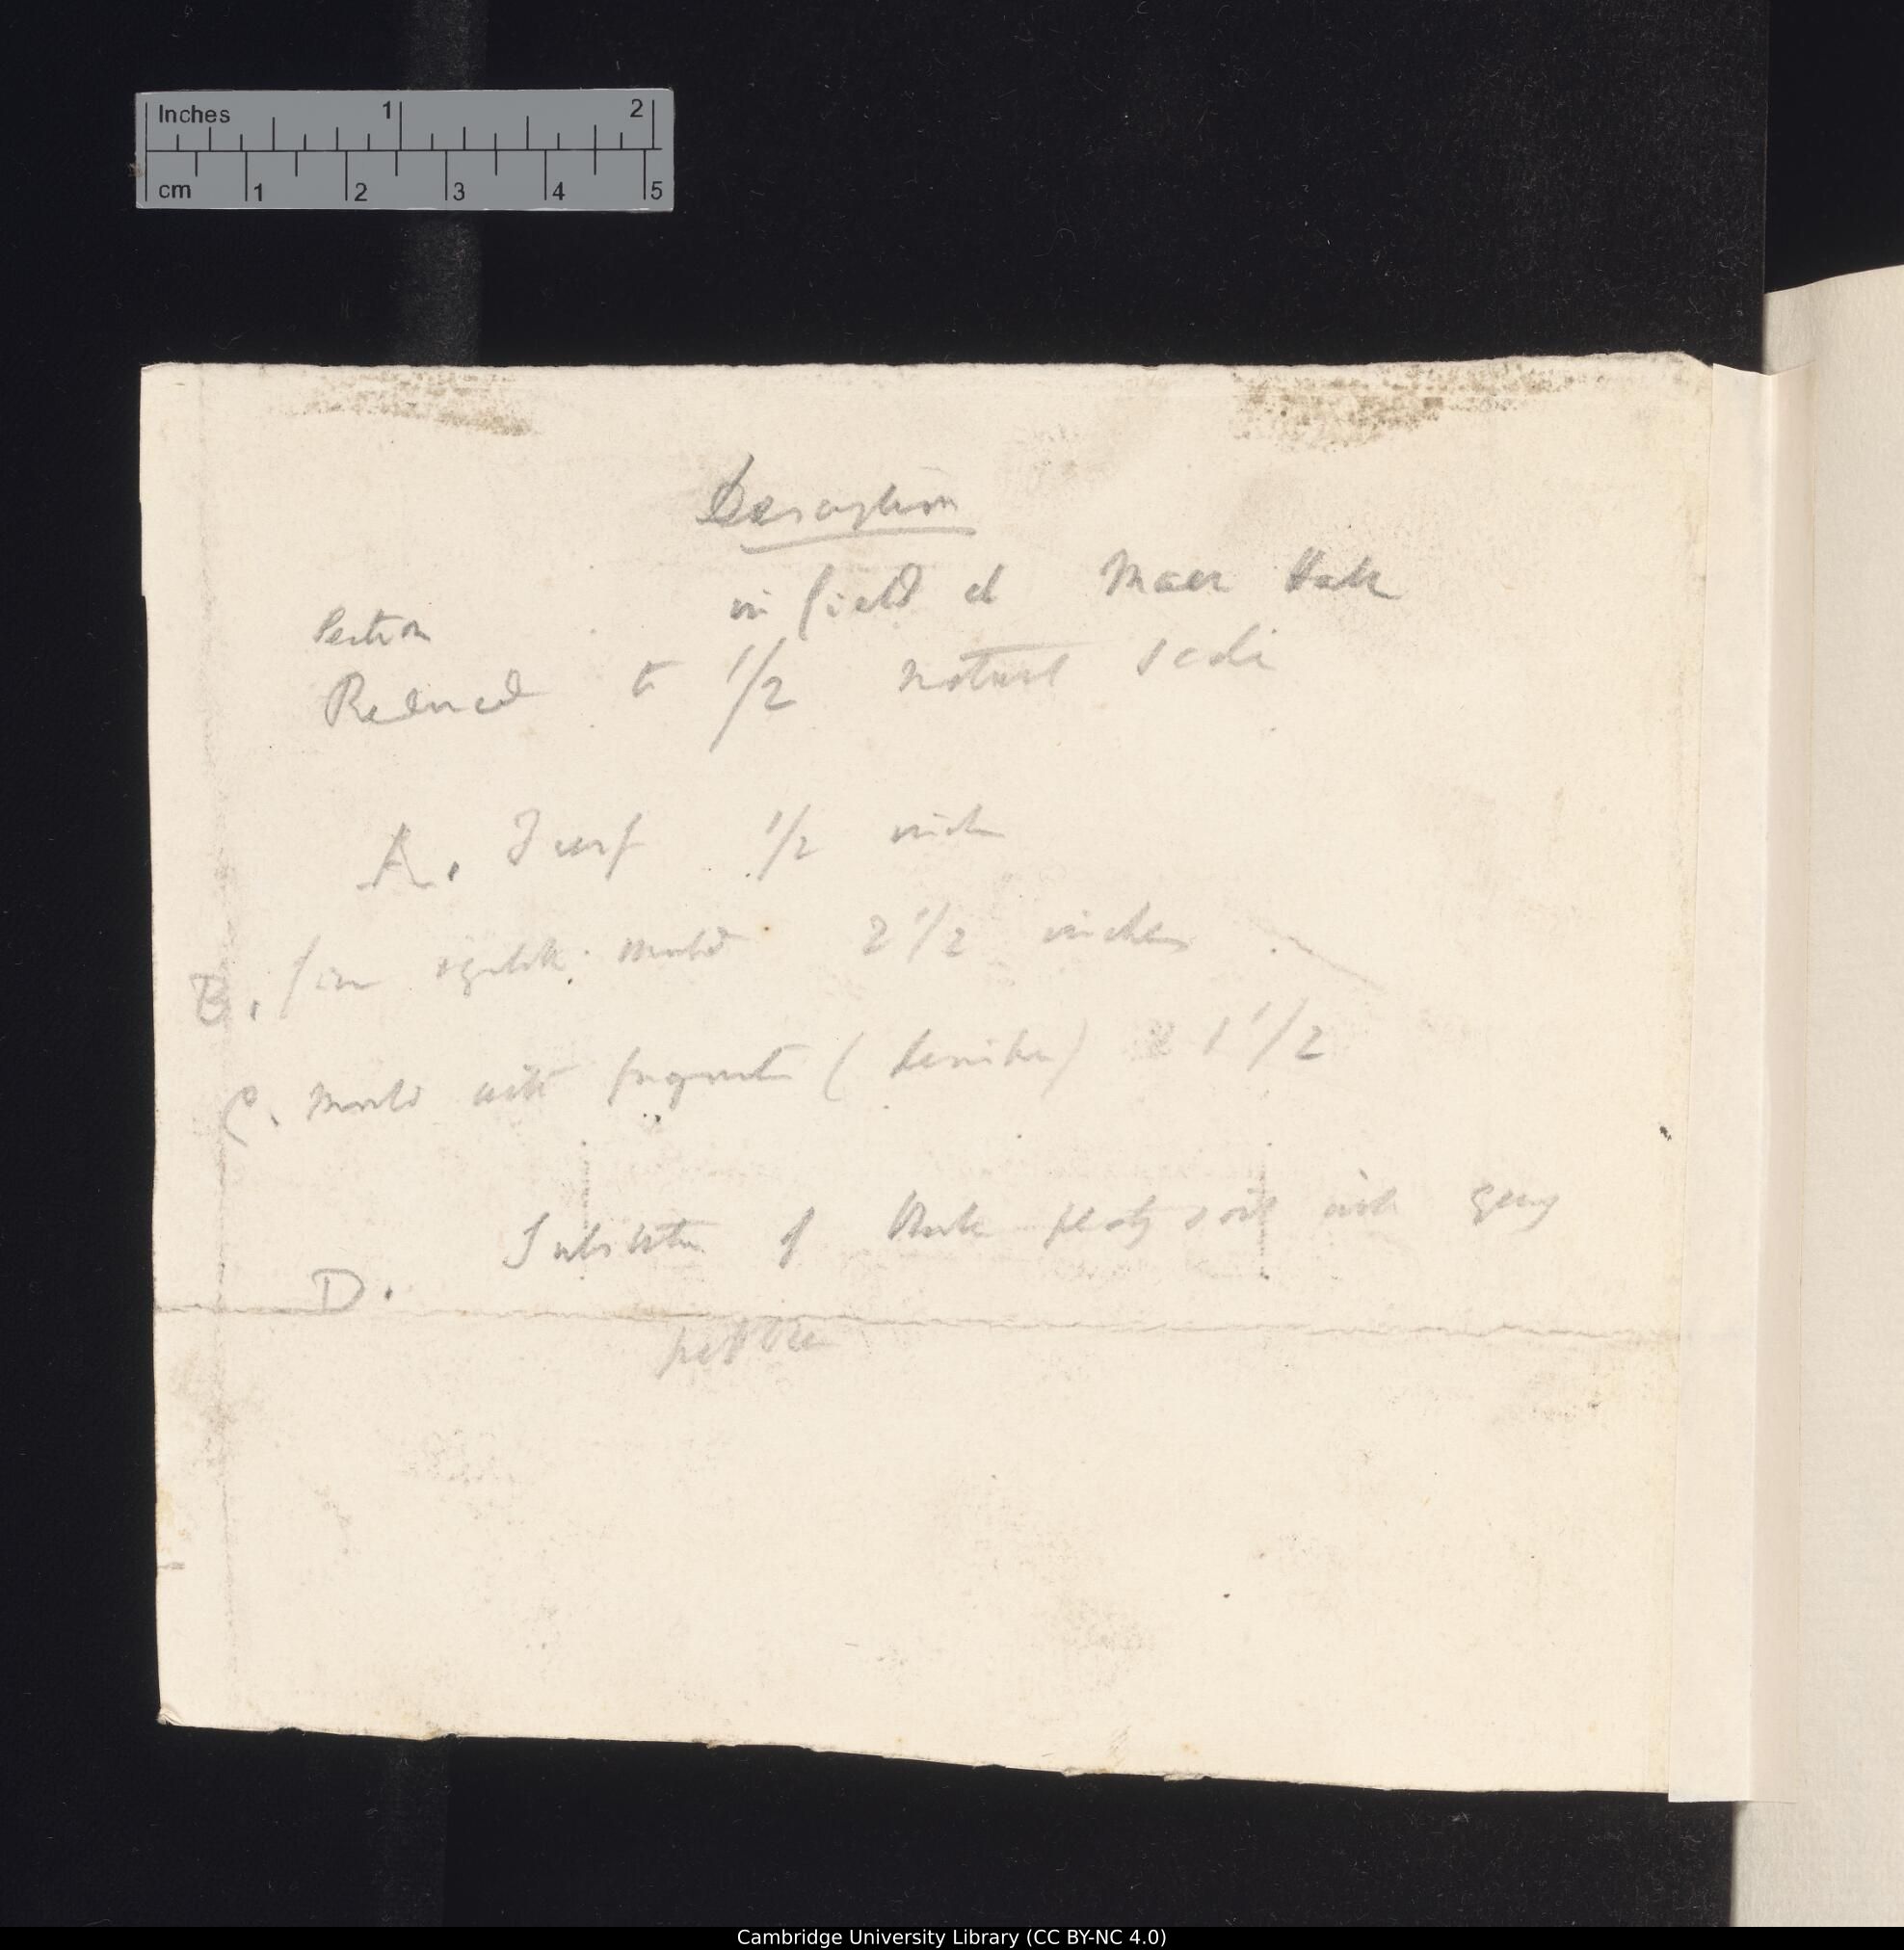 Inches 1 2
cm 1 2 3 4 5
Description
Section in field at Maer Hall
Reduced to 1/2 natural scale
A. Turf 1/2 inch
B. fine vegetable mould 2 1/2 inches
C. Mould with fragments ( ) 1 1/2
D. Substratum of black peaty soil with quartz
pebbles
Cambridge University Library (CC BY-NC 4.0)